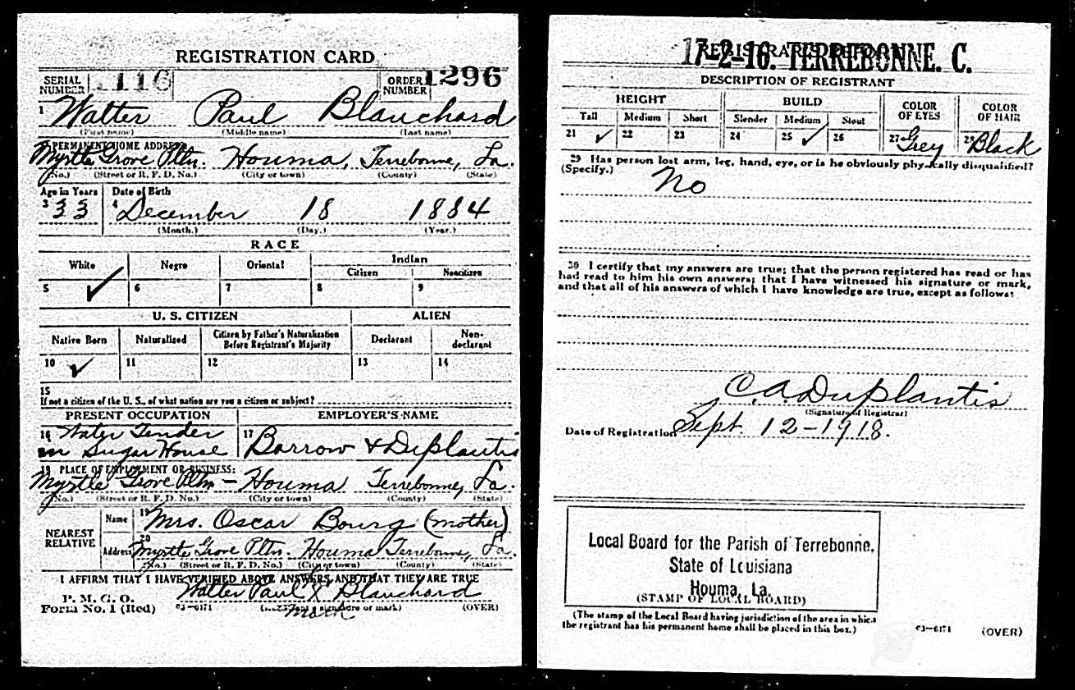 REGISTRATION CARD
SERIAL NUMBER 116 ORDER NUMBER 1296
1 Walter Paul Blanchard
(First name) (Middle name) (Last name)
2 PERMANENT HOME ADDRESS
Myrtle Grove Pltn. Houma, Terrebonne, La.
(No.) (Street or R. F. D. No.) (City or town) (County) (State)
Age in Years Date of Birth
3 33 4 December 18 1884
(Month.) (Day.) (Year.)
RACE
White Negro Oriental Indian
Citizen Noncitizen
5 ✓ 6 7 8 9
U. S. CITIZEN ALIEN
Native Born Naturalized Citizen by Father's Naturalization Before Registrant's Majority Declarant Non-declarant
10 ✓ 11 12 13 14
15
If not a citizen of the U. S., of what nation are you a citizen or subject?
PRESENT OCCUPATION EMPLOYER'S NAME
16 Water Tender 17
in Sugar House Barrow & Duplantis
18 PLACE OF EMPLOYMENT OR BUSINESS:
Myrtle Grove Pltn – Houma Terrebonne, La.
(No.) (Street or R. F. D. No.) (City or town) (County) (State)
NEAREST RELATIVE
Name 19 Mrs. Oscar Bourg (mother)
Address 20 Myrtle Grove Pltn. Houma Terrebonne, La.
(No.) (Street or R. F. D. No.) (City or town) (County) (State)
I AFFIRM THAT I HAVE VERIFIED ABOVE ANSWERS AND THAT THEY ARE TRUE
P. M. G. O.
Form No. 1 (Red) 03—6171 Walter Paul X Blanchard
(Registrant's signature or mark) (OVER)
mark
REGISTRAR'S REPORT
17-2-16. TERREBONNE. C.
DESCRIPTION OF REGISTRANT
HEIGHT BUILD COLOR OF EYES COLOR OF HAIR
Tall Medium Short Slender Medium Stout
21 ✓ 22 23 24 25 ✓ 26 27 Grey 28 Black
29 Has person lost arm, leg, hand, eye, or is he obviously physically disqualified?
(Specify.) No
30 I certify that my answers are true; that the person registered has read or has
had read to him his own answers; that I have witnessed his signature or mark,
and that all of his answers of which I have knowledge are true, except as follows:
C. A. Duplantis
(Signature of Registrar)
Date of Registration Sept. 12-1918.
Local Board for the Parish of Terrebonne,
State of Louisiana
Houma, La.
(STAMP OF LOCAL BOARD)
(The stamp of the Local Board having jurisdiction of the area in which
the registrant has his permanent home shall be placed in this box.)
03—6171 (OVER)